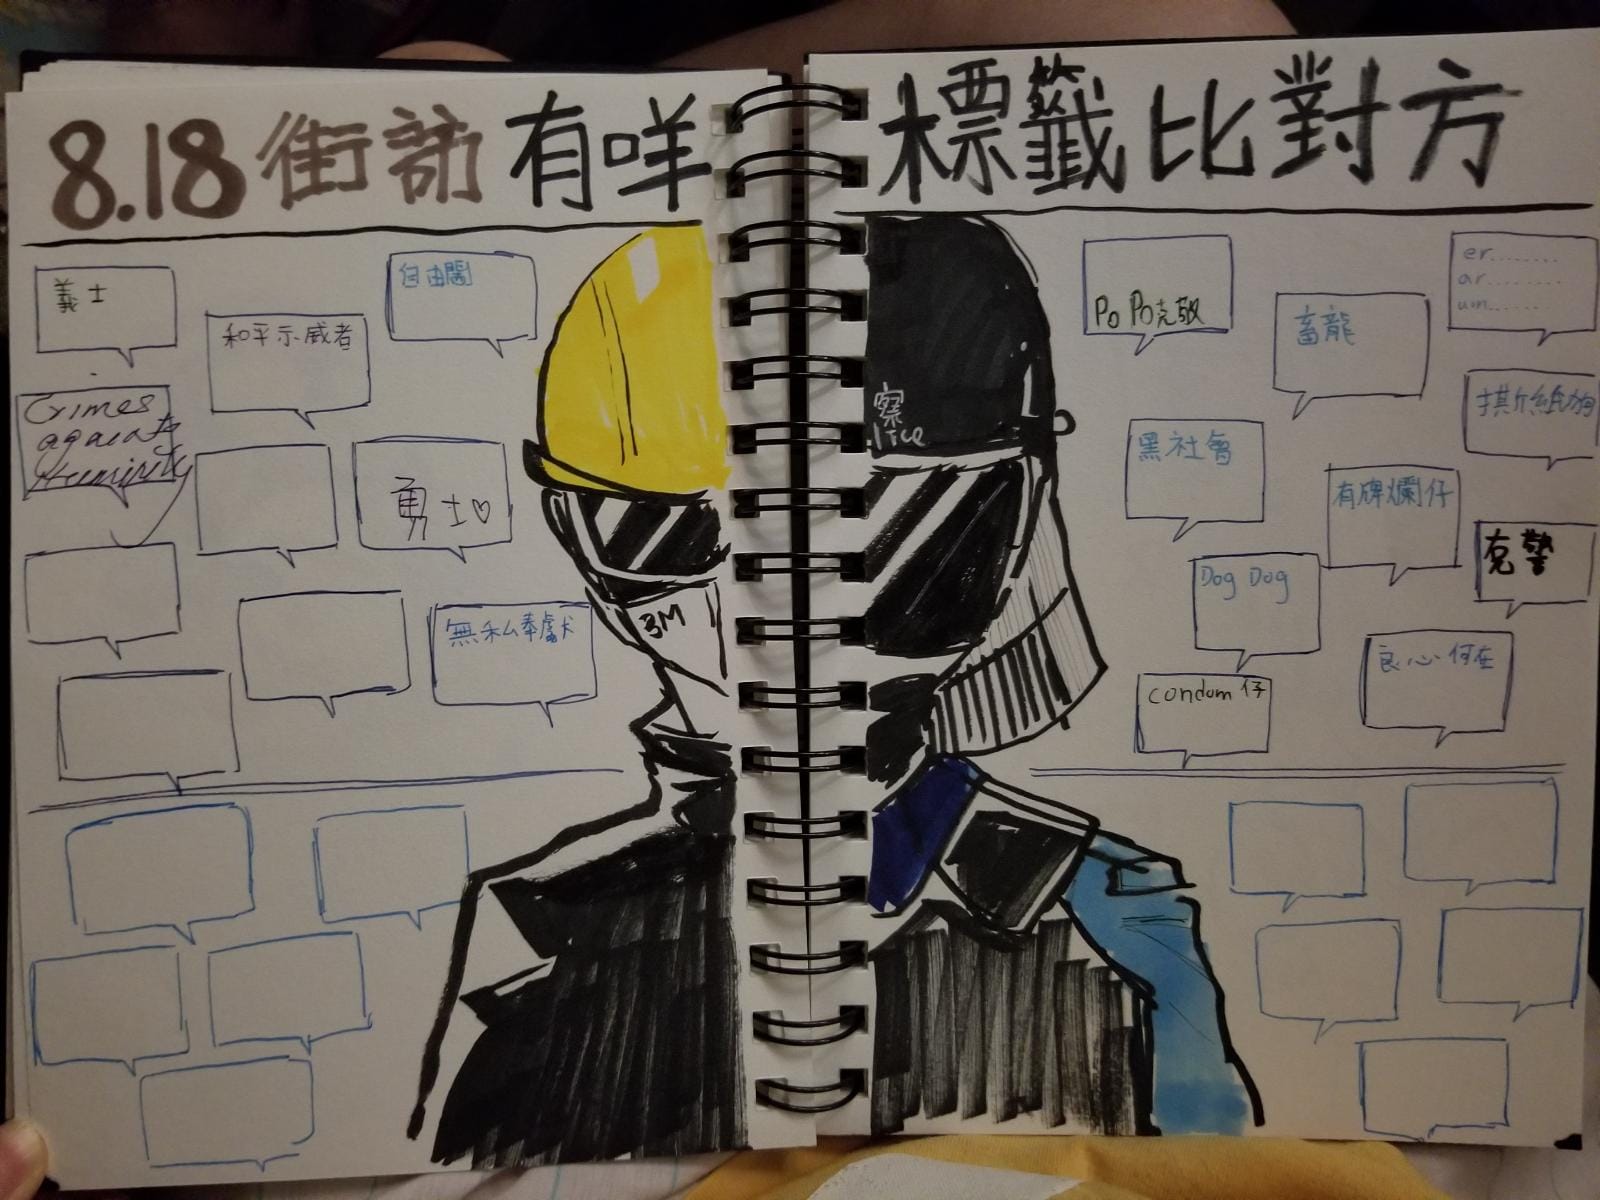 8.18 街訪 有咩 標籤比對方
義士
自由閪
和平示威者
Crimes
against
Humanity
勇士♡
無私奉獻
3M
察
lice
PoPo克敬
er........
ar........
um......
畜龍
黑社會
有牌爛仔
Dog Dog
克警
良心何在
condom仔